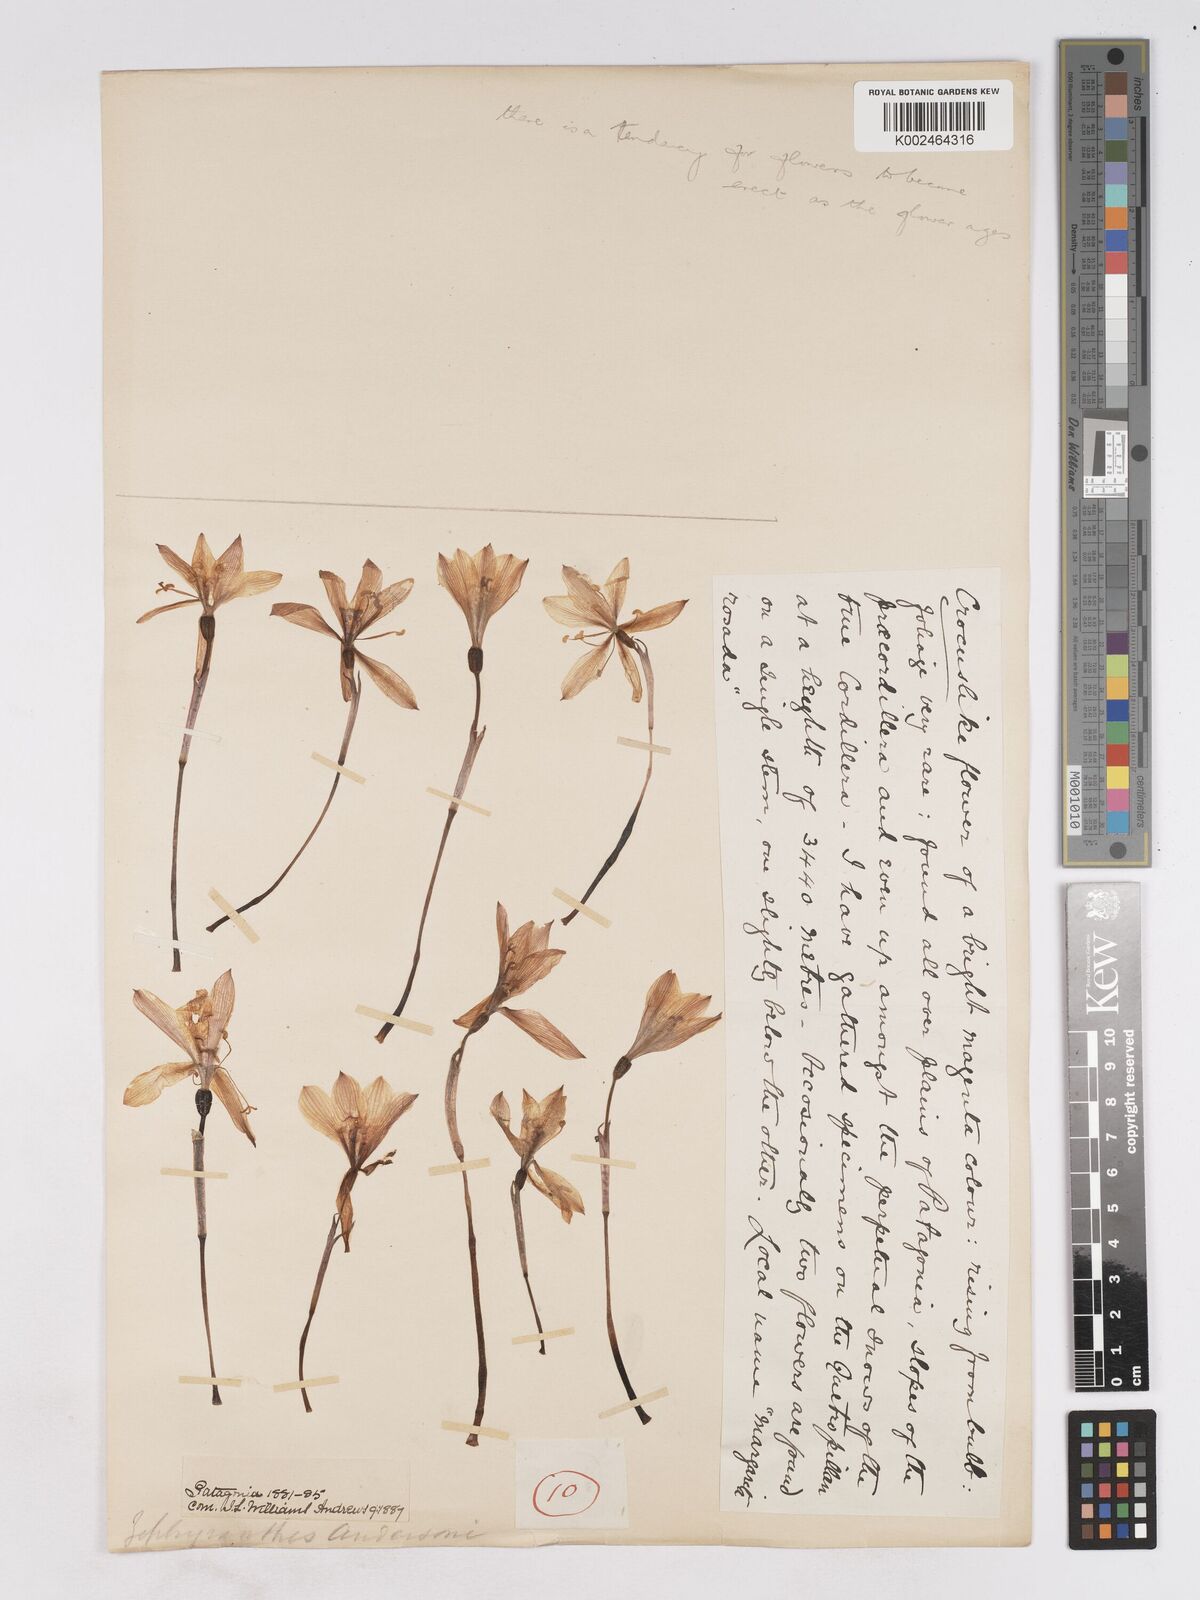 ROYAL BOTANIC GARDENS KEW
K002464316
there is a tendency for flowers to become
erect as the flower ages
Crocuslike flower of a bright magenta colour: rising from bulb:
foliage very rare: found all over plains of Patagonia, slopes of the
præcordillera and even up amongst the perpetual snows of the
true Cordillera - I have gathered specimens on the Quetropillan
at a height of 3440 metres - Occasionally two flowers are found
on a single stem, one slightly below the other. Local name "Margarita
rosada"
Patagonia 1881-85
Com. J.L. Williams Andrews 9/1887
10
Zephyranthes Andersoni
inches
centimetres
Density
Don Williams
M001010
Kew
Royal Botanic Gardens
copyright reserved
0 1 2 3 4 5 6 7 8 9 10
cm